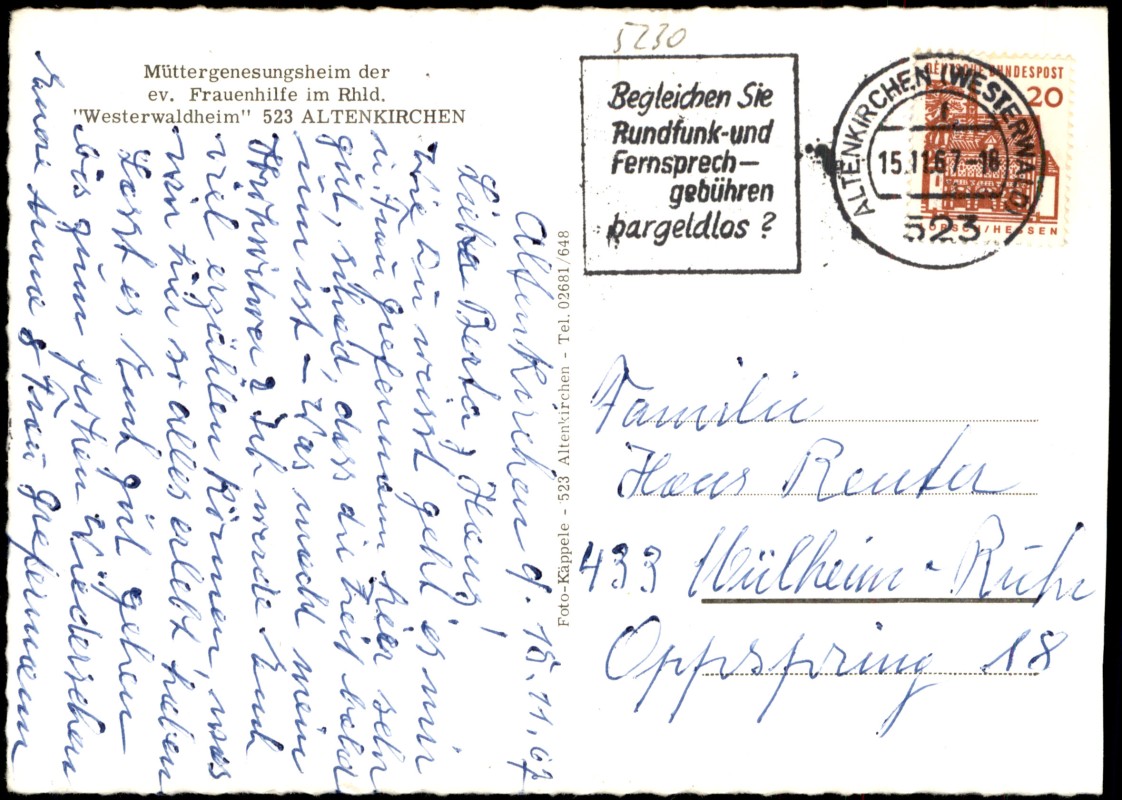 Müttergenesungsheim der
ev. Frauenhilfe im Rhld.
"Westerwaldheim" 523 ALTENKIRCHEN
Altenkirchen d. 15.11.67
Liebe Berta, Hans!
Wie Du weisst geht es mir
u. Frau Grefermann hier sehr
gut, schad, dass die Zeit bald
um ist – Was macht mein
Ich werde Euch
viel erzählen können, was
wir hier so alles erlebt haben
Lasst es Euch gut gehen
bis zum frohen Wiedersehen
Eure Anna & Frau Grefermann
Foto-Käppele - 523 Altenkirchen - Tel. 02681/648
5230
Begleichen Sie
Rundfunk-und
Fernsprech—
gebühren
bargeldlos ?
ALTENKIRCHEN (WESTERWALD)
15.11.67-18
523
DEUTSCHE BUNDESPOST
20
LORSCH/HESSEN
Familie
Hans Reuter
433 Mülheim-Ruhr
Oppspring 18